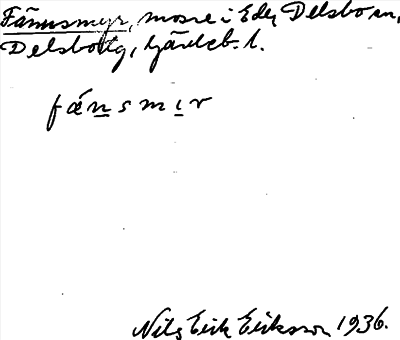 Fännsmyr, mosse i Ede, Delsbo sn,
Delsbo tg, Gävleb. l.
fǽn̲smı̲r
Nils Erik Eriksson 1936.